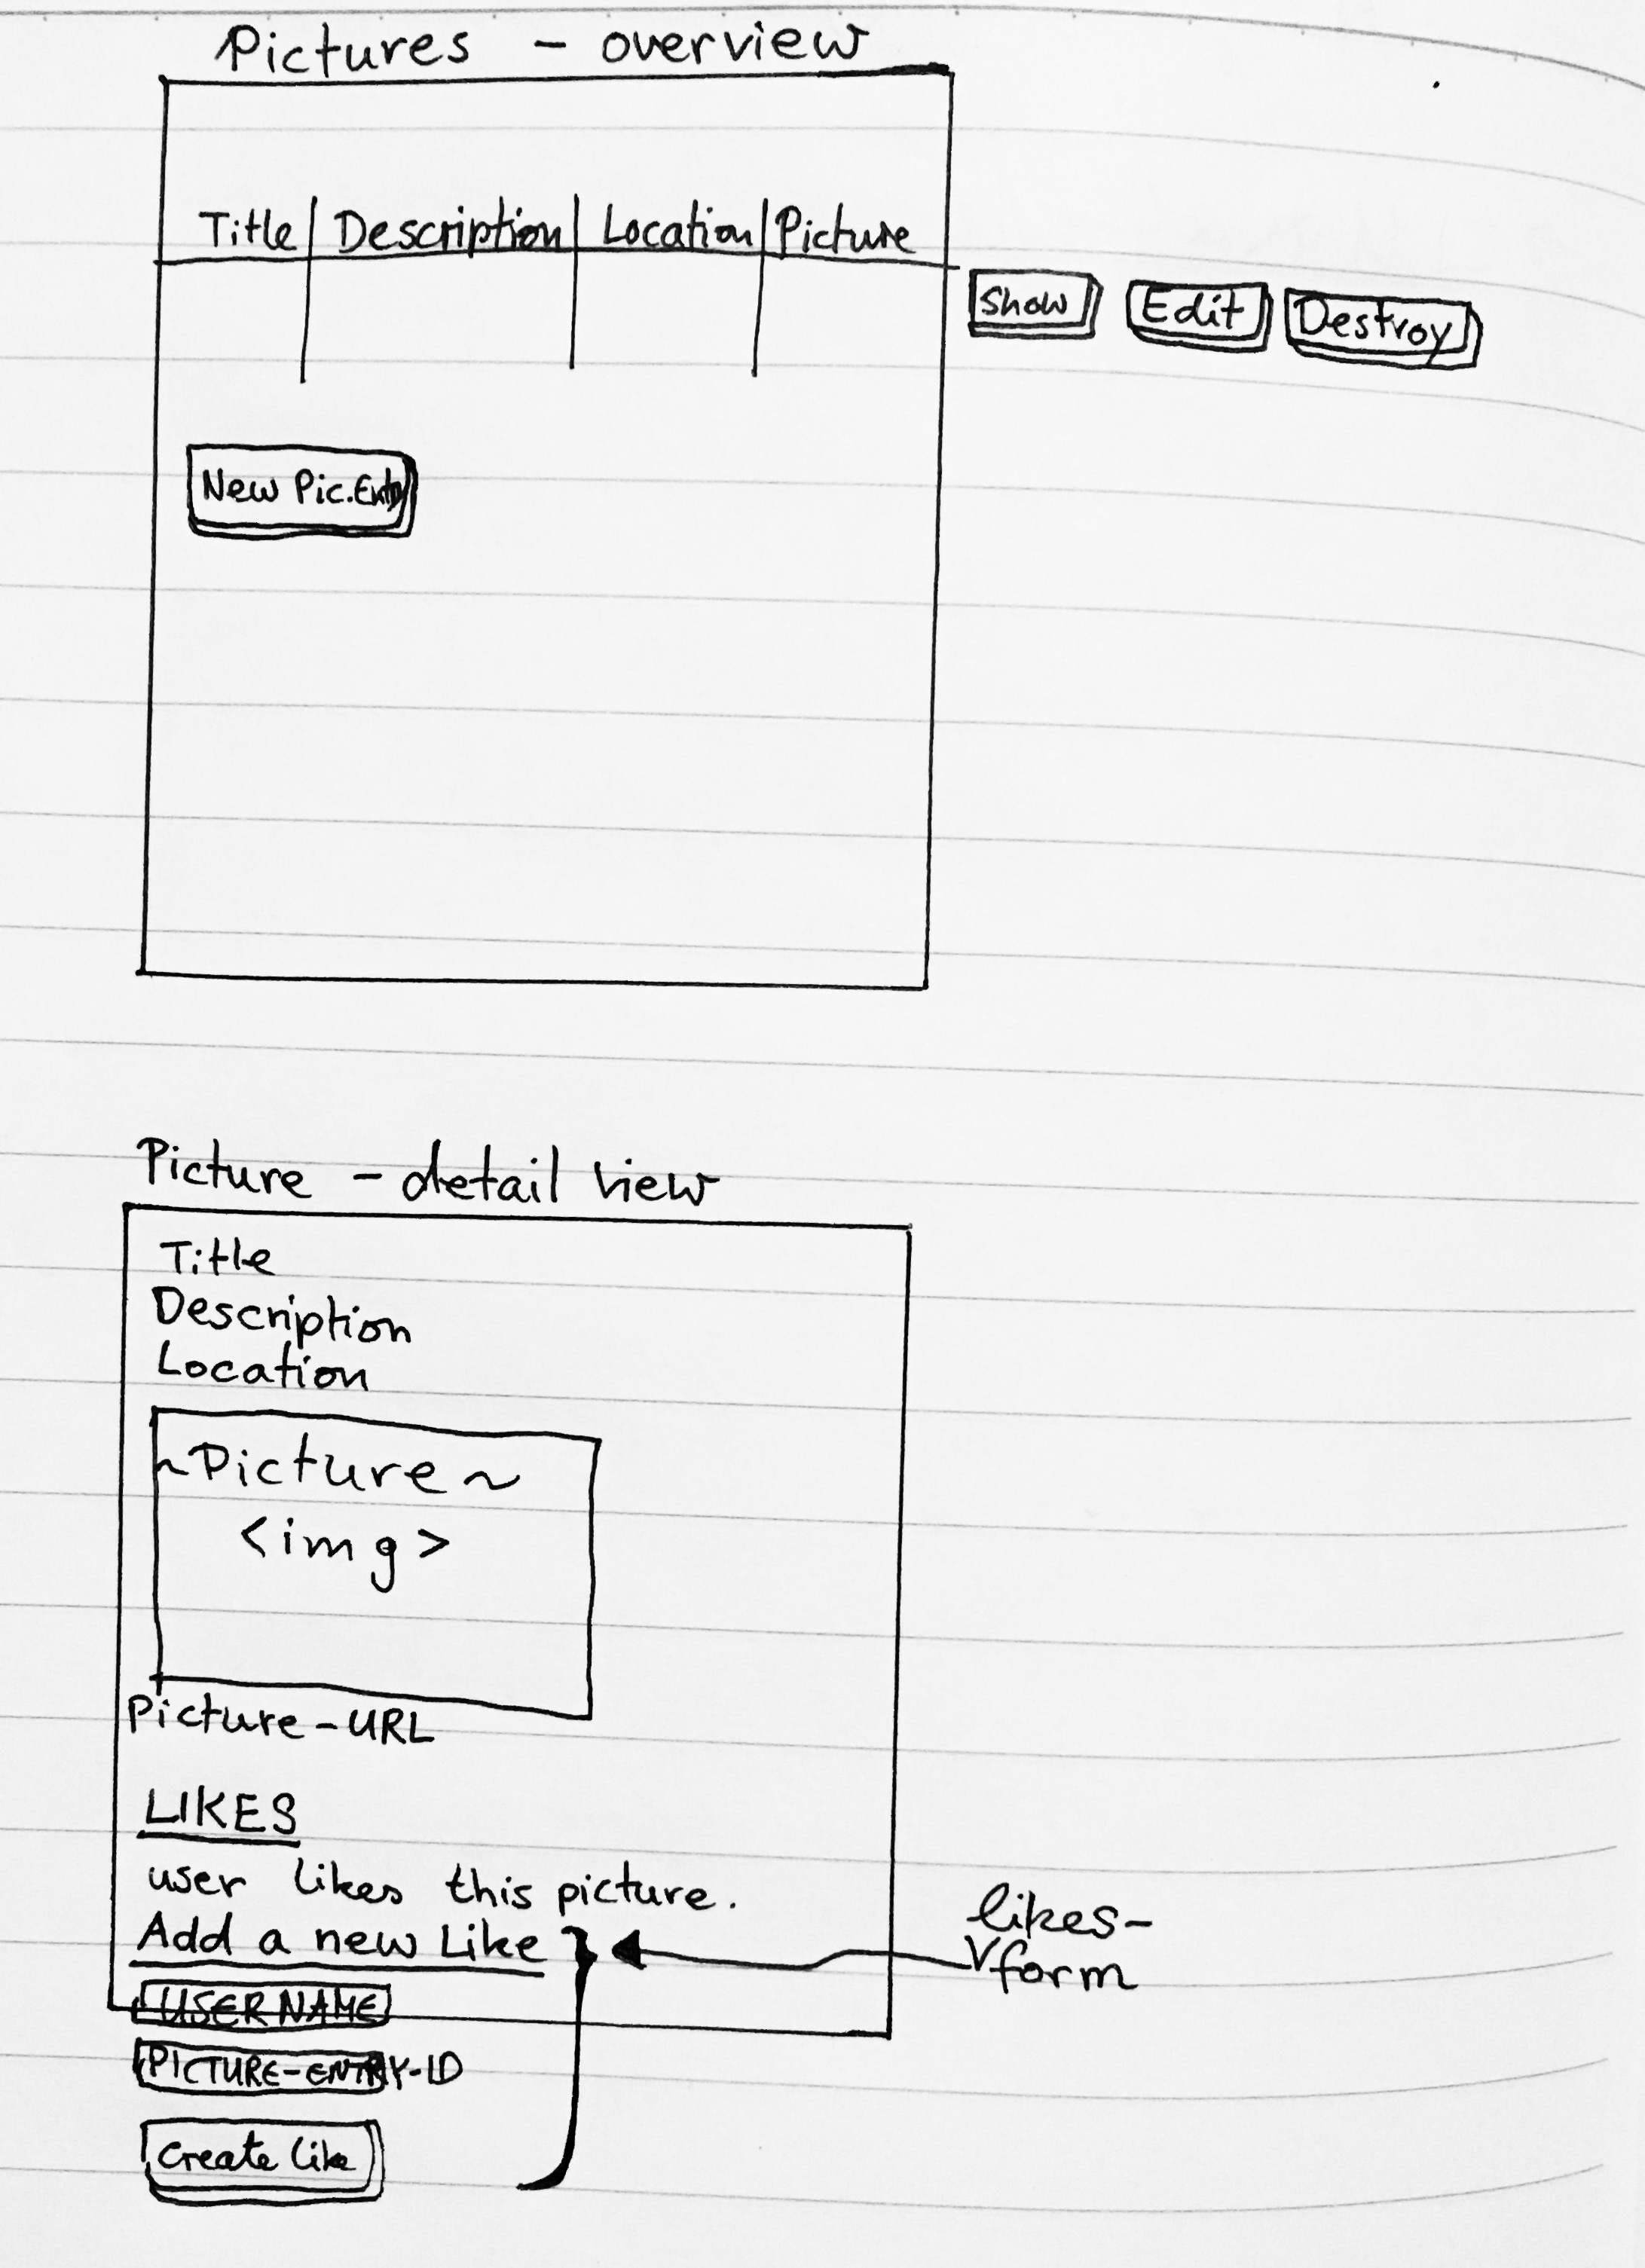 Pictures - overview
Title Description Location Picture
Show Edit Destroy
New Pic.Entry
Picture - detail view
Title
Description
Location
~Picture~
<img>
Picture-URL
LIKES
user likes this picture.
Add a new Like
likes-
form
USERNAME
PICTURE-ENTRY-ID
Create like